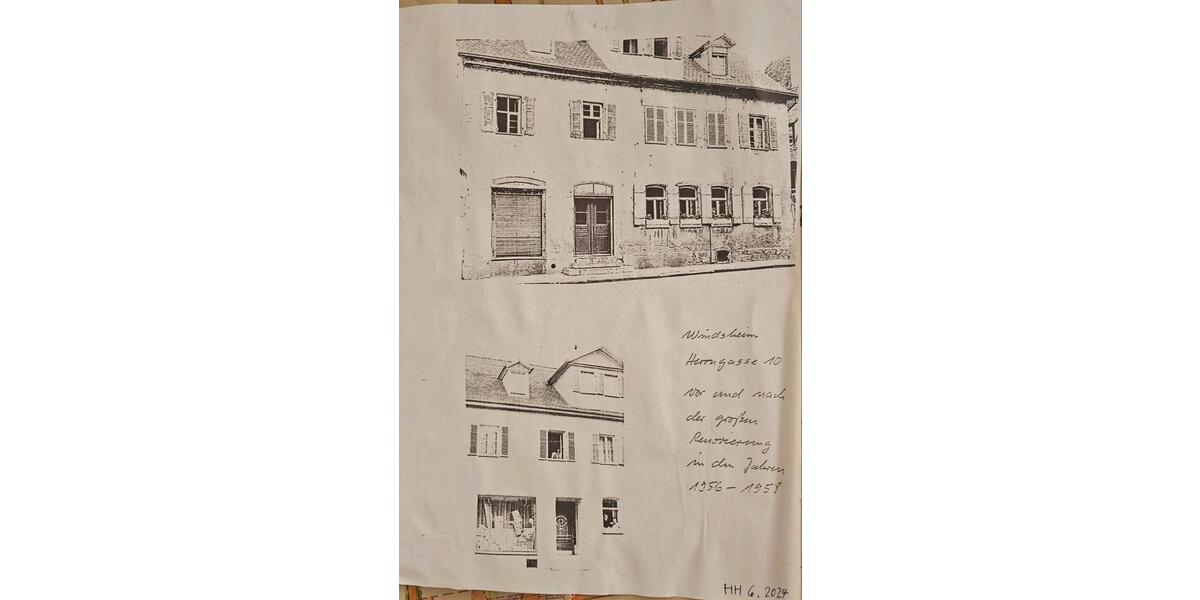 Windsheim
Herrngasse 10
vor und nach
der großen
Renovierung
in den Jahren
1956 - 1958
HH 6, 2024